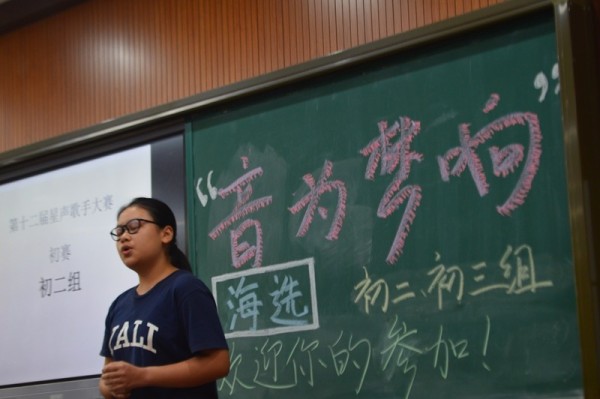 第十二届星声歌手大赛
初赛
初二组
“音为梦响”
海选
初二、初三组
欢迎你的参加!
ALI